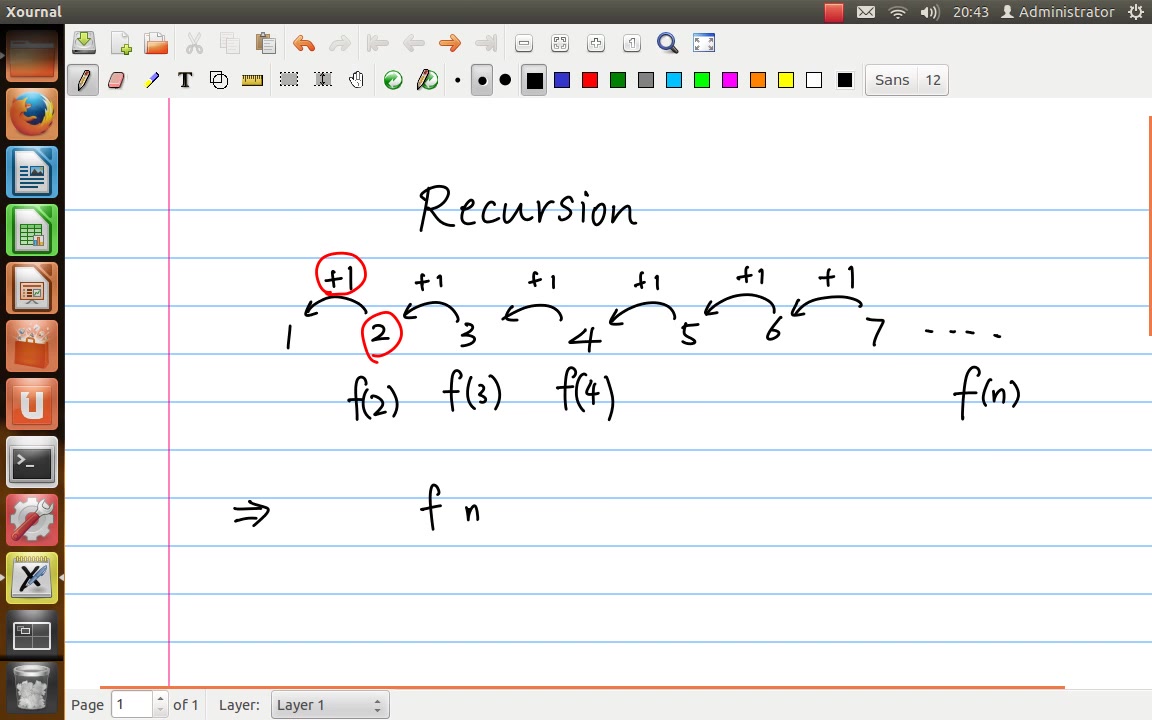 Xournal
20:43 Administrator
T Sans 12
Recursion
+1 +1 +1 +1 +1 +1
1 2 3 4 5 6 7 ....
f(2) f(3) f(4) f(n)
⇒ f n
Page 1 of 1 Layer: Layer 1